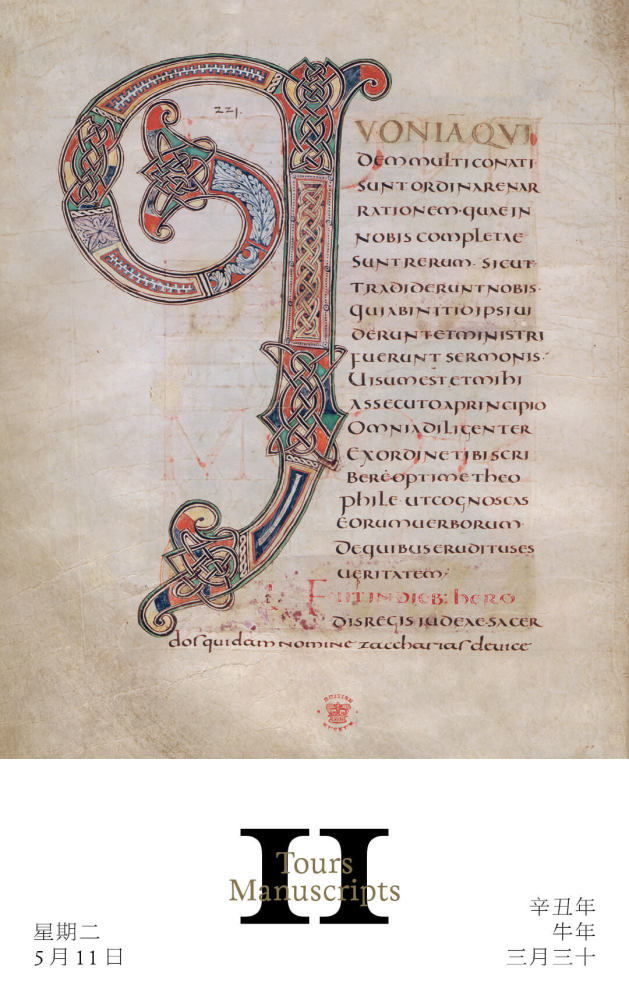 221.
QVONIAQVI
DEMMULTICONATI
SUNTORDINARENAR
RATIONEM·QUAEIN
NOBIS COMPLETAE
SUNTRERUM· SICUT
TRADIDERUNTNOBIS·
QUIABINITIOIPSIUI
DERUNTETMINISTRI
FUERUNT SERMONIS·
UISUMESTETMIHI
ASSECUTOAPRINCIPIO
OMNIADILIGENTER
EXORDINETIBISCRI
BEREOPTIMETHEO
PHILE UTCOGNOSCAS
EORUMUERBORUM·
DEQUIBUSERUDITUSES
UERITATEM·
FUITINDIEB: HERO
DISREGIS IUDEAESACER
dosquidam nomine zaccharias deuice
BRITISH MUSEUM
II
Tours
Manuscripts
星期二
5月11日
辛丑年
牛年
三月三十